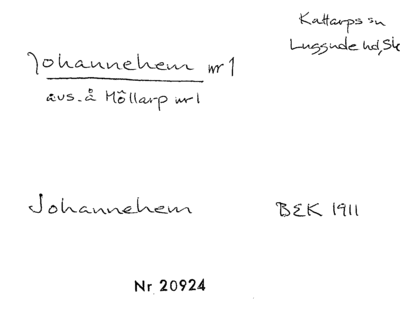 Kattarps sn
Luggude hd, Sk
Johannehem nr 1
avs. å Möllarp nr 1
Johannehem BEK 1911
Nr 20924